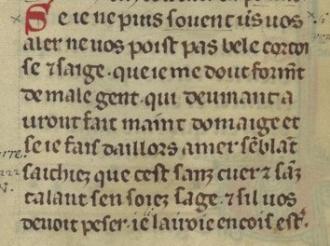 Se ie ne puis souent uͥs uos
aler ne uos poist pas bele cortoi
se ⁊ saige. que ie me dout formt̄
de male gent. qui deuinant a
uront fait maint domaige et
se ie fais daillors amer sēblāt
saichiez que cest sanz cuer ⁊ sāz
talant sen soiez sage. ⁊ sil uos
deuoit peser ie lairoie encois est᷑.